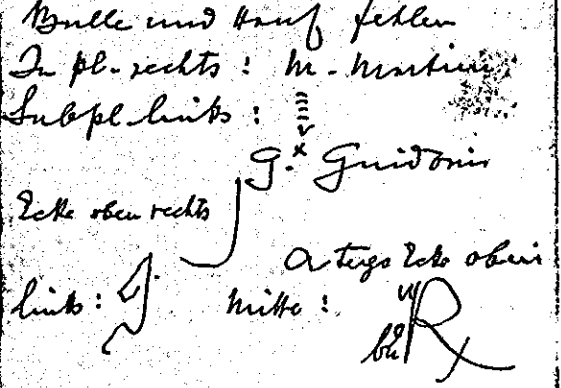 Bulle und Hanf fehlen
In pl. rechts: M. Martini
Subpl. links:
G. Guidonis
Ecke oben rechts
A tergo Ecke oben
links: Mitte: R